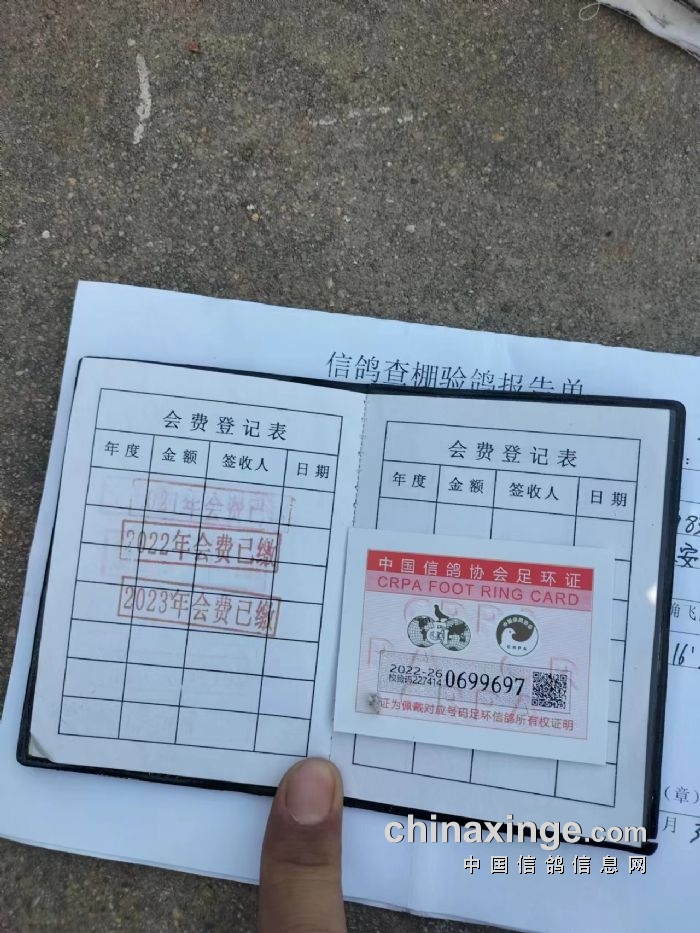 信鸽查棚验鸽报告单
会费登记表
年度 金额 签收人 日期
2022年会费已缴
2023年会费已缴
会费登记表
年度 金额 签收人 日期
中国信鸽协会足环证
CRPA FOOT RING CARD
CRPA
2022-26
校验码227414
0699697
证为佩戴对应号码足环信鸽所有权证明
安
16'
(章)
月 3
chinaxinge.com
中国信鸽信息网